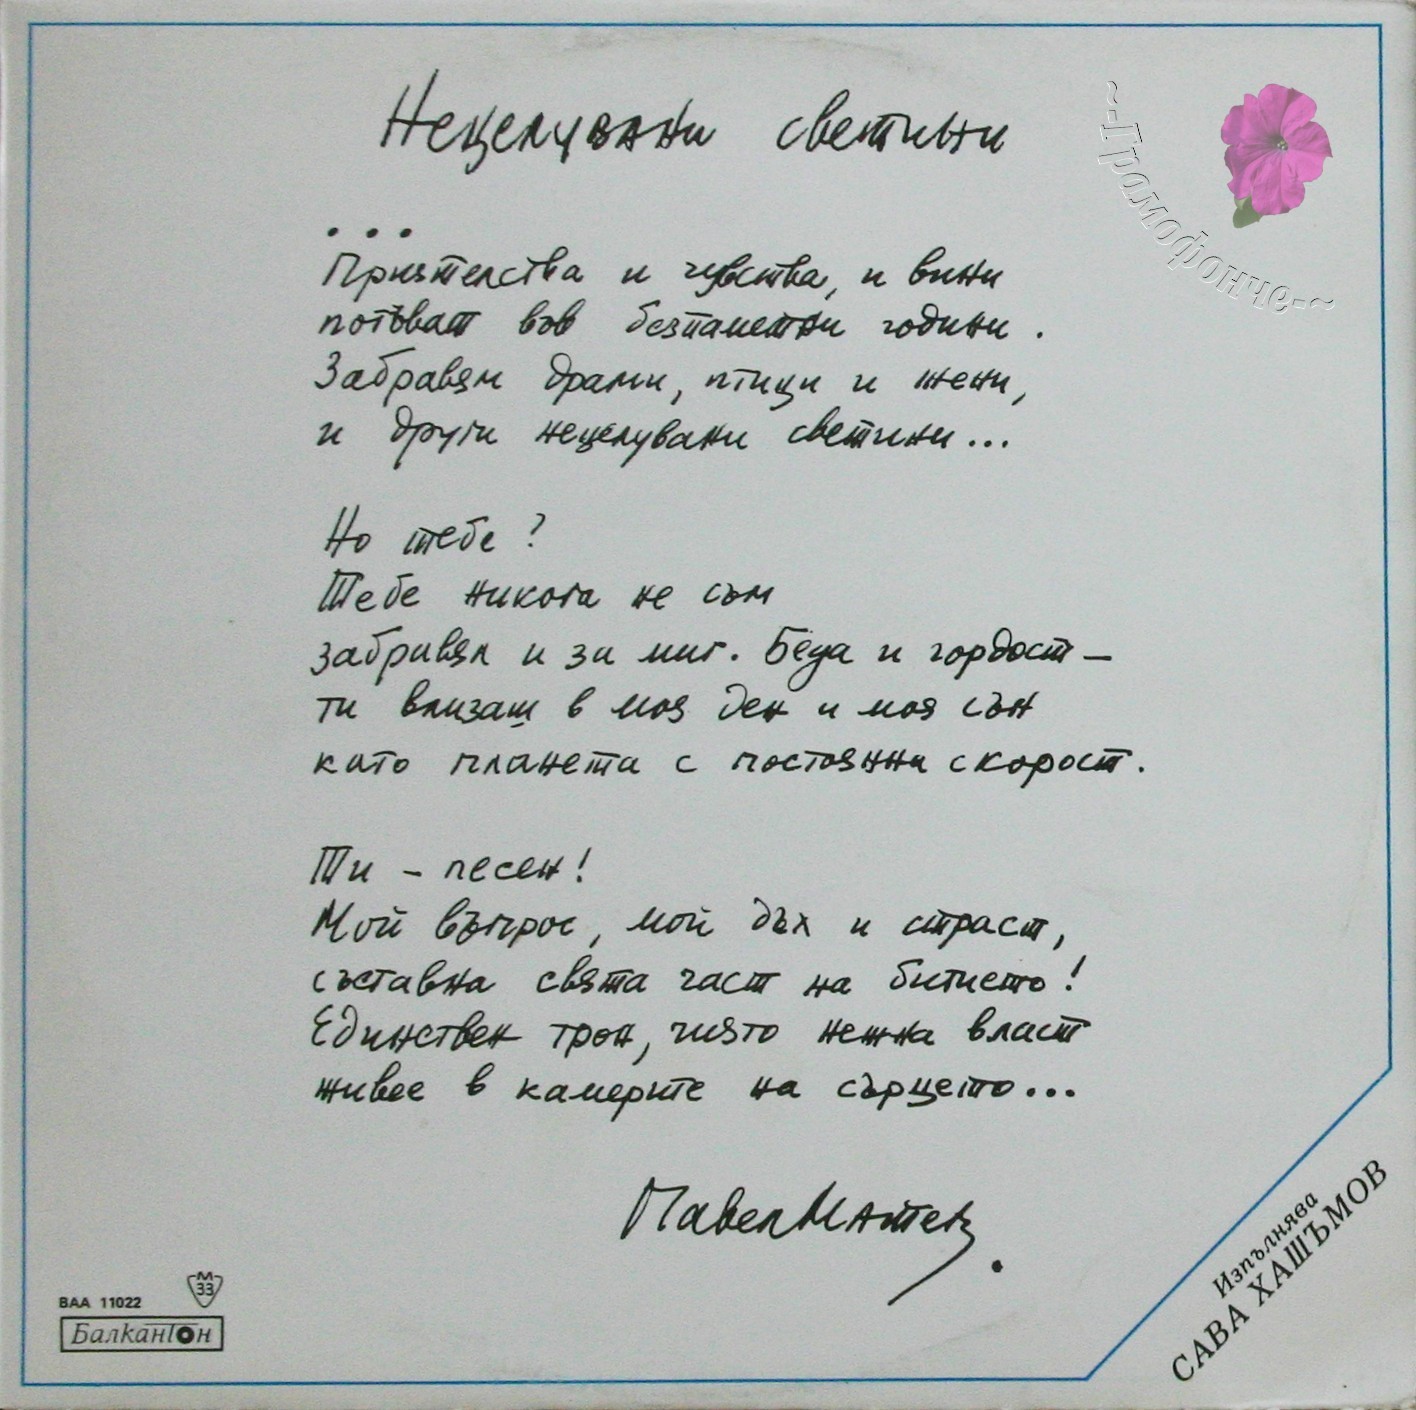 Нецелувани светини
~-Грамофонче-~
...
Приятелства и чувства, и вини
потъват във безпаметни години.
Забравям драми, птици и жени,
и други нецелувани светини...
Но тебе?
Тебе никога не съм
забравял и за миг. Беда и гордост –
ти влизаш в моя ден и моя сън
като планета с постоянни скорост.
Ти – песен!
Мой въпрос, мой дъх и страст,
съставна свята част на битието!
Единствен трон, чиято нежна власт
живее в камерите на сърцето...
Павел Матев.
Изпълнява
САВА ХАШЪМОВ
ВАА 11022
М
33
Балкантон